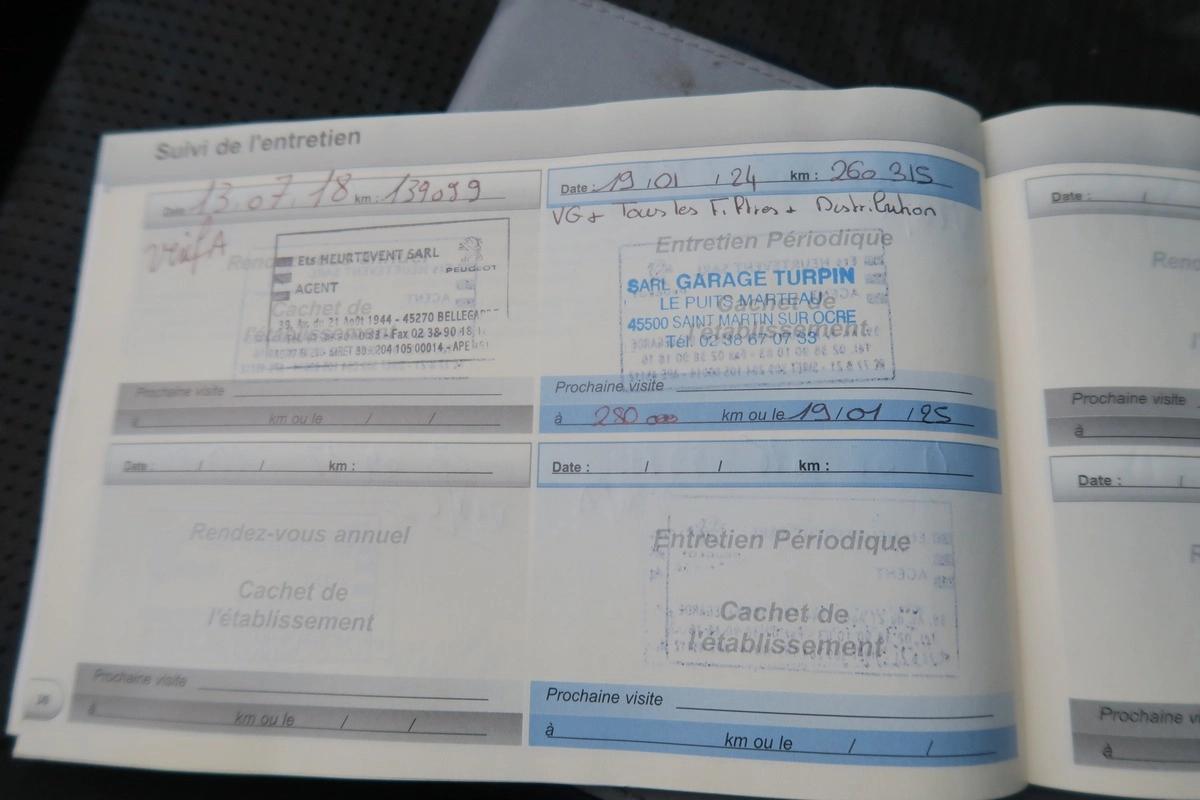 Suivi de l'entretien
Date : 13.07.18 km : 139099
Verif A
Rendez-vous annuel
Ets HEURTEVENT SARL
PEUGEOT
AGENT
Cachet de
l'établissement
39, Av. du 21 Août 1944 - 45270 BELLEGARDE
Prochaine visite
à km ou le / /
Date : 19/01/24 km : 260 315
VG + Tous les Filtres + Distribution
Entretien Périodique
SARL GARAGE TURPIN
LE PUITS MARTEAU
Cachet de
45500 SAINT MARTIN SUR OCRE
l'établissement
Tél. 02 38 67 07 33
Prochaine visite
à 280 000 km ou le 19/01/25
Date : / / km :
Rendez-vous annuel
Cachet de
l'établissement
Prochaine visite
à km ou le / /
Date : / / km :
Entretien Périodique
Cachet de
l'établissement
Prochaine visite
à km ou le / /
Date : /
Prochaine visite
à
Date : /
à